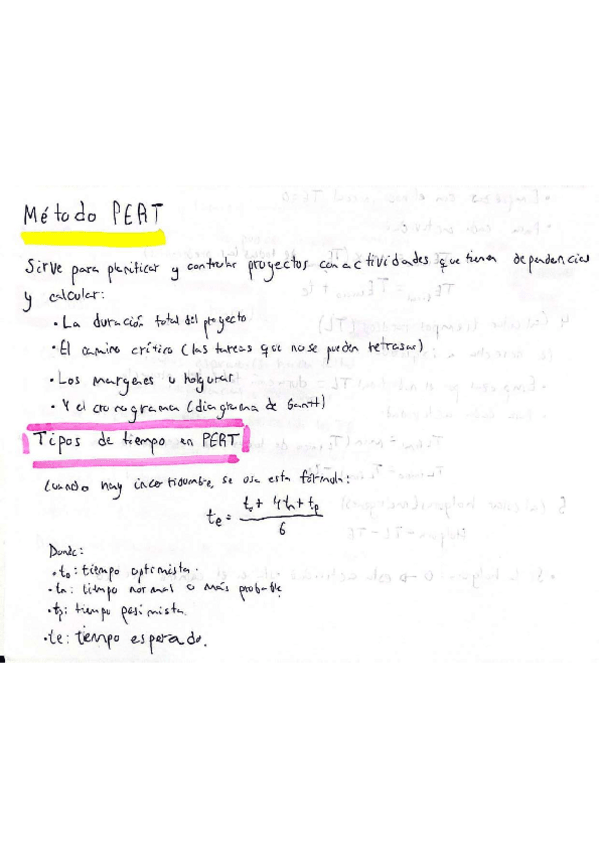 Método PERT
Sirve para planificar y controlar proyectos con actividades que tienen dependencias
y calcular:
• La duración total del proyecto
• El camino crítico (las tareas que no se pueden retrasar)
• Los margenes u holguras
• Y el cronograma (diagrama de Gantt)
Tipos de tiempo en PERT
Cuando hay incertidumbre, se usa esta fórmula:
te = (to + 4tn + tp) / 6
Donde:
• to: tiempo optimista.
• tn: tiempo normal o más probable
• tp: tiempo pesimista.
• te: tiempo esperado.